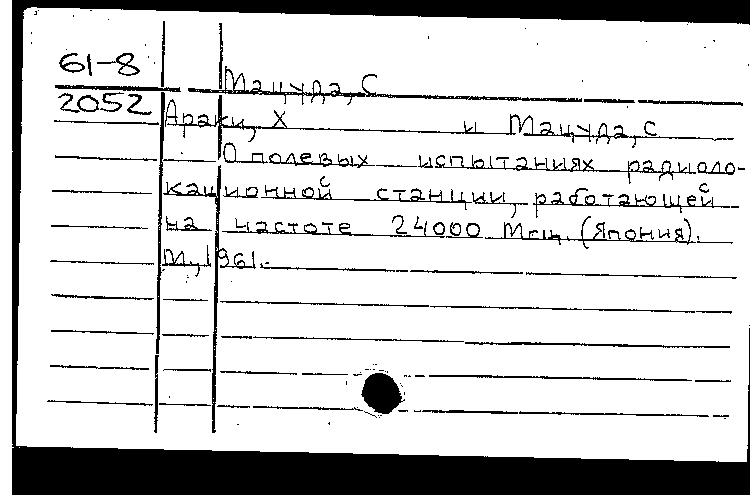 61-8
Мацуда, С
2052
Араки, Х и Мацуда, С
О полевых испытаниях радиоло-
кационной станции, работающей
на частоте 24000 Мгц. (Япония).
М., 1961.